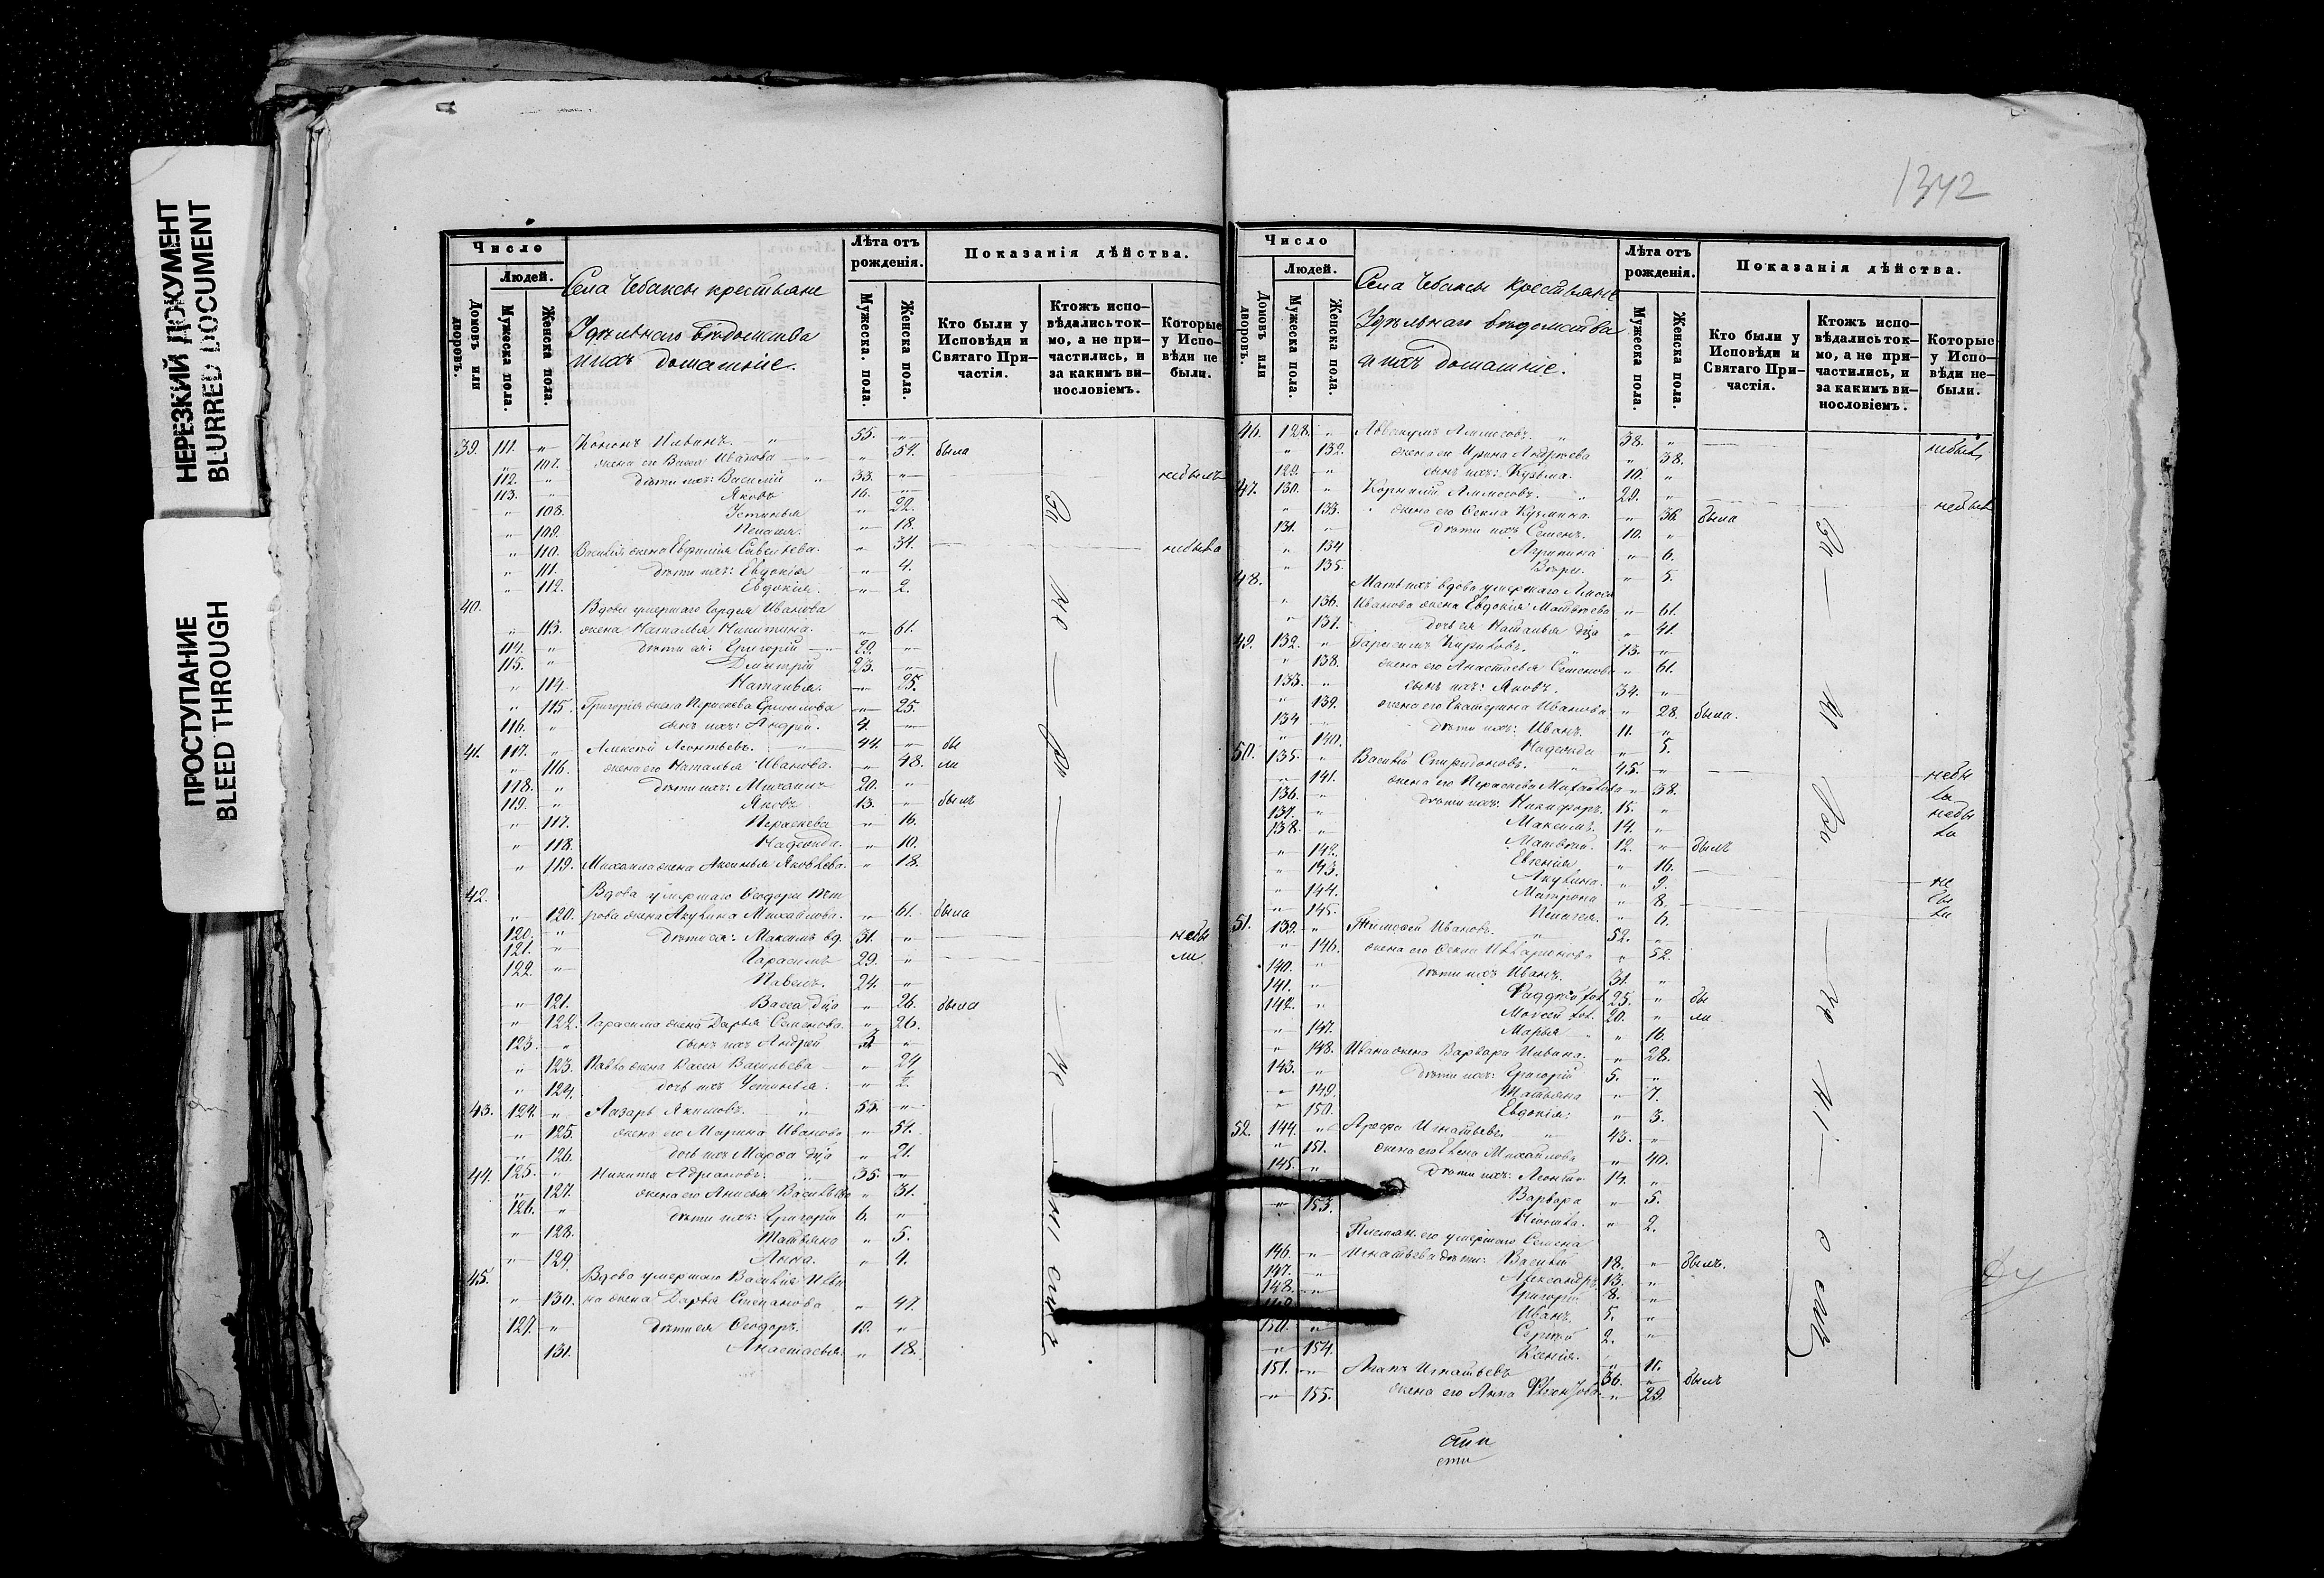 НЕРЕЗКИЙ ДОКУМЕНТ
BLURRED DOCUMENT
ПРОСТУПАНИЕ
BLEED THROUGH
1342
Число
Людей.
Домовъ или дворовъ.
Мужеска пола.
Женска пола.
Села Чебаксы крестьяне
Удѣльнаго вѣдомства
и ихъ домашніе.
Лѣта отъ рожденія.
Мужеска пола.
Женска пола.
Показанія дѣйства.
Кто были у Исповѣди и Святаго Причастія.
Ктожъ исповѣдались токмо, а не причастились, и за какимъ винословіемъ.
Которые у Исповѣди не были.
39. 111. Кононъ Ильинъ. 55.
107. жена его Васса Иванова 54. была
112. дѣти ихъ: Василій 33. небылъ
113. Яковъ 16.
108. Устинья 22.
109. Пелагея. 18.
110. Василія жена Евфимія Савельева. 34. небыла
111. дѣти ихъ: Евдокія 4.
112. Евдокія. 2.
40. Вдова умершаго Гордея Иванова
113. жена Наталья Никитина. 61.
114. дѣти ея: Григорій 29.
115. Дмитрій 23.
114. Наталья. 25.
115. Григорія жена Параскева 25.
116. сынъ ихъ: Андрей. 4.
41. 117. Алексѣй Леонтьевъ. 44. бы
116. жена его Наталья Иванова. 48. ли
118. дѣти ихъ: Михаилъ 20.
119. Яковъ 13. былъ
117. Параскева 16.
118. Надежда. 10.
119. Михаила жена Аксинья Яковлева. 18.
42. Вдова умершаго Ѳеодора Пет
120. рова жена Акулина Михайлова. 61. была
120. дѣти ея: Максимъ вд. 31. небы
121. Гарасимъ 29. ли.
122. Павелъ. 24.
121. Васса дца 26. была
122. Гарасима жена Дарья Семенова. 26.
123. сынъ ихъ Андрей
123. Павла жена Васса Васильева 24.
124. дочь ихъ Устинья. 2.
43. 124. Лазарь Якимовъ. 55.
125. жена его Марина Иванова 54.
126. дочь ихъ Марѳа дца 21.
44. 125. Никита Адріановъ. 35.
127. жена его Анисья Васильева 31.
126. дѣти ихъ: Григорій 6.
128. Татьяна 5.
129. Анна. 4.
45. Вдова умершаго Василія Ильи
130. на жена Дарья Степанова 47.
127. дѣти ея Ѳеодоръ. 19.
131. Анастасья. 18.
Число
Людей.
Домовъ или дворовъ.
Мужеска пола.
Женска пола.
Села Чебаксы крестьяне
Удѣльнаго вѣдомства
и ихъ домашніе.
Лѣта отъ рожденія.
Мужеска пола.
Женска пола.
Показанія дѣйства.
Кто были у Исповѣди и Святаго Причастія.
Ктожъ исповѣдались токмо, а не причастились, и за какимъ винословіемъ.
Которые у Исповѣди небыли.
46. 128. Аввакумъ 38.
132. жена его Ирина Андреева 38.
129. сынъ ихъ: Кузьма. 10.
47. 130. Корнилій 29.
133. жена его Ѳекла Кузмина. 36. была
131. дѣти ихъ Семенъ. 10.
134 Агрипина 6.
135. Вѣра. 5.
48. Мать ихъ вдова умершаго
136. Иванова жена Евдокія Матвѣева 61.
137. дочь ея Наталья дца 41.
49. 132. Гарасимъ Кириловъ.
138. жена его Анастасья Семенова 61.
133. сынъ ихъ: Яковъ. 34.
139. жена его Екатерина Иванова 28. была.
134 дѣти ихъ: Иванъ. 11.
140. Надежда 5.
50. 135. Василій Спиридоновъ. 45.
141. жена его Параскева Михайлова 38. небы
136. дѣти ихъ: Никифоръ. 15. ла
137. Максимъ. 14. небы
138. Матвей. 12. былъ
142. Евгенія 16.
143. Акулина. 9. не
144. Матрона 8. бы
145. Пелагея. 6. ли
51. 139. Тимофей Ивановъ. 52.
146. жена его Ѳекла Илларіонова 52.
140. дѣти ихъ Иванъ. 31.
141. Фаддѣй хол. 25. бы
142. Моисей хол. 20. ли
147. Марья 16.
148. Ивана жена Варвара Ильина. 28.
143. дѣти ихъ: Григорій 5.
149. Татьяна 7.
150. Евдокія: 3.
52. 144. Арефа Игнатьевъ 43.
151. жена его Елена Михайлова 40.
145. дѣти ихъ: Леонтій 14.
Варвара 5.
153. 2.
Племян. его умершаго Семена
146. Игнатьева дѣти: Василій 18. былъ.
147. Александръ 13.
148. Григорій 8.
Иванъ. 5.
150. Сергѣй 2.
154. Ксенія. 11.
151. Агапъ Игнатьевъ 36. былъ
155. жена его Анна 29.